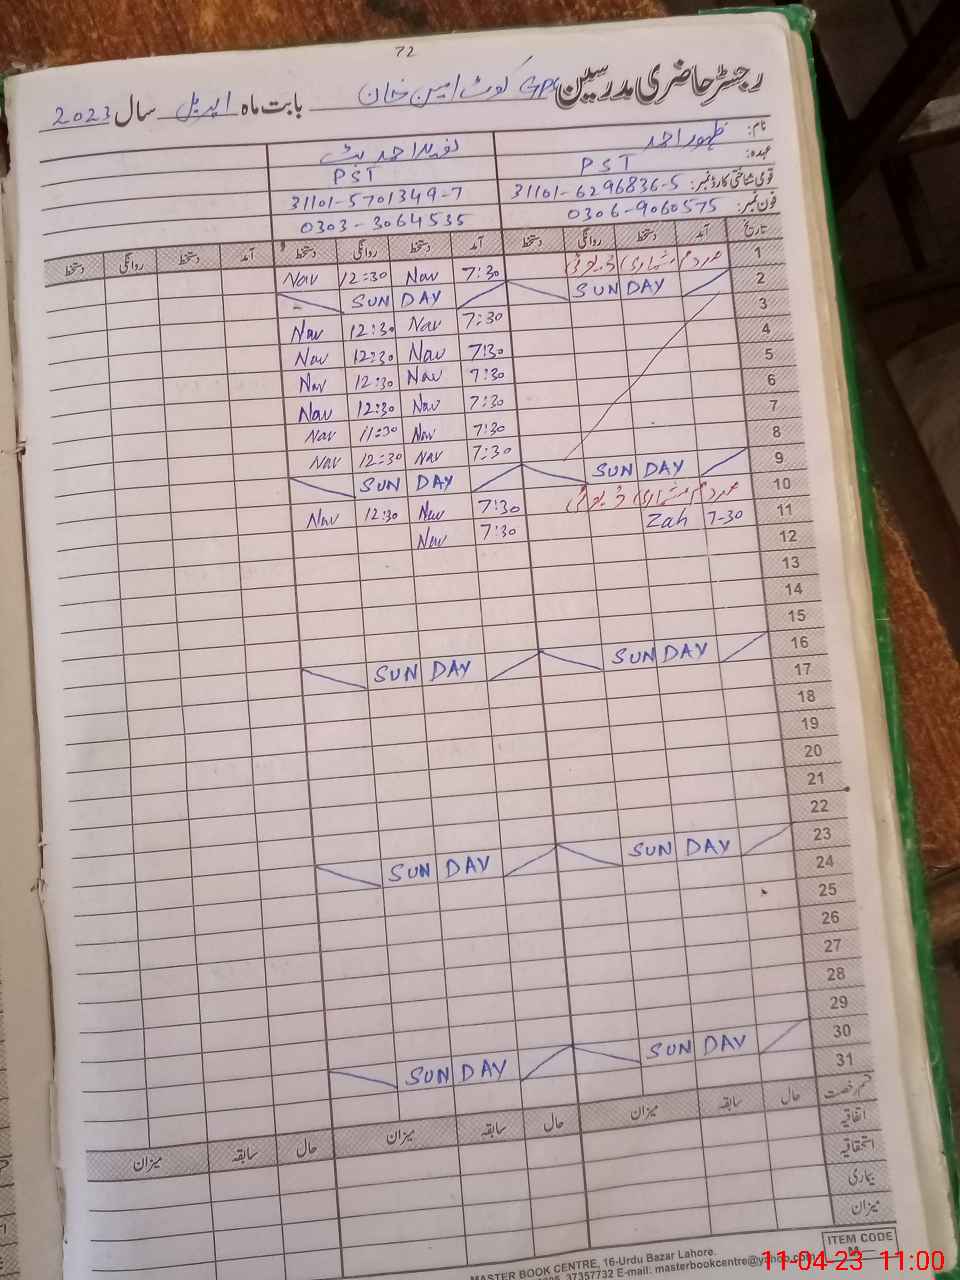 72
رجسٹر حاضری مدرسین GPS کوٹ امین خان بابت ماہ اپریل سال 2023
نام: ظہور احمد نوید احمد بٹ
عہدہ: PST PST
قومی شناختی کارڈ نمبر: 31101-6296836-5 31101-5701349-7
فون نمبر: 0306-9060575 0303-3064535
تاریخ آمد دستخط روانگی دستخط آمد دستخط روانگی دستخط آمد دستخط روانگی دستخط
1 مردم شماری ڈیوٹی 7:30 Nav 12:30 Nav
2 SUNDAY SUNDAY
3 7:30 Nav 12:30 Nav
4 7:30 Nav 12:30 Nav
5 7:30 Nav 12:30 Nav
6 7:30 Nav 12:30 Nav
7 7:30 Nav 11:30 Nav
8 7:30 Nav 12:30 Nav
9 SUNDAY SUNDAY
10 مردم شماری ڈیوٹی 7:30 Nav 12:30 Nav
11 7-30 Zah 7:30 Nav
12
13
14
15
16 SUNDAY SUNDAY
17
18
19
20
21
22
23 SUNDAY SUNDAY
24
25
26
27
28
29
30 SUNDAY SUNDAY
31
قسم رخصت حال سابقہ میزان حال سابقہ میزان حال سابقہ میزان
اتفاقیہ
استحقاقیہ
بیماری
میزان
ITEM CODE
MASTER BOOK CENTRE, 16-Urdu Bazar Lahore.
37357732 E-mail: masterbookcentre@yahoo.com
11-04-23 11:00